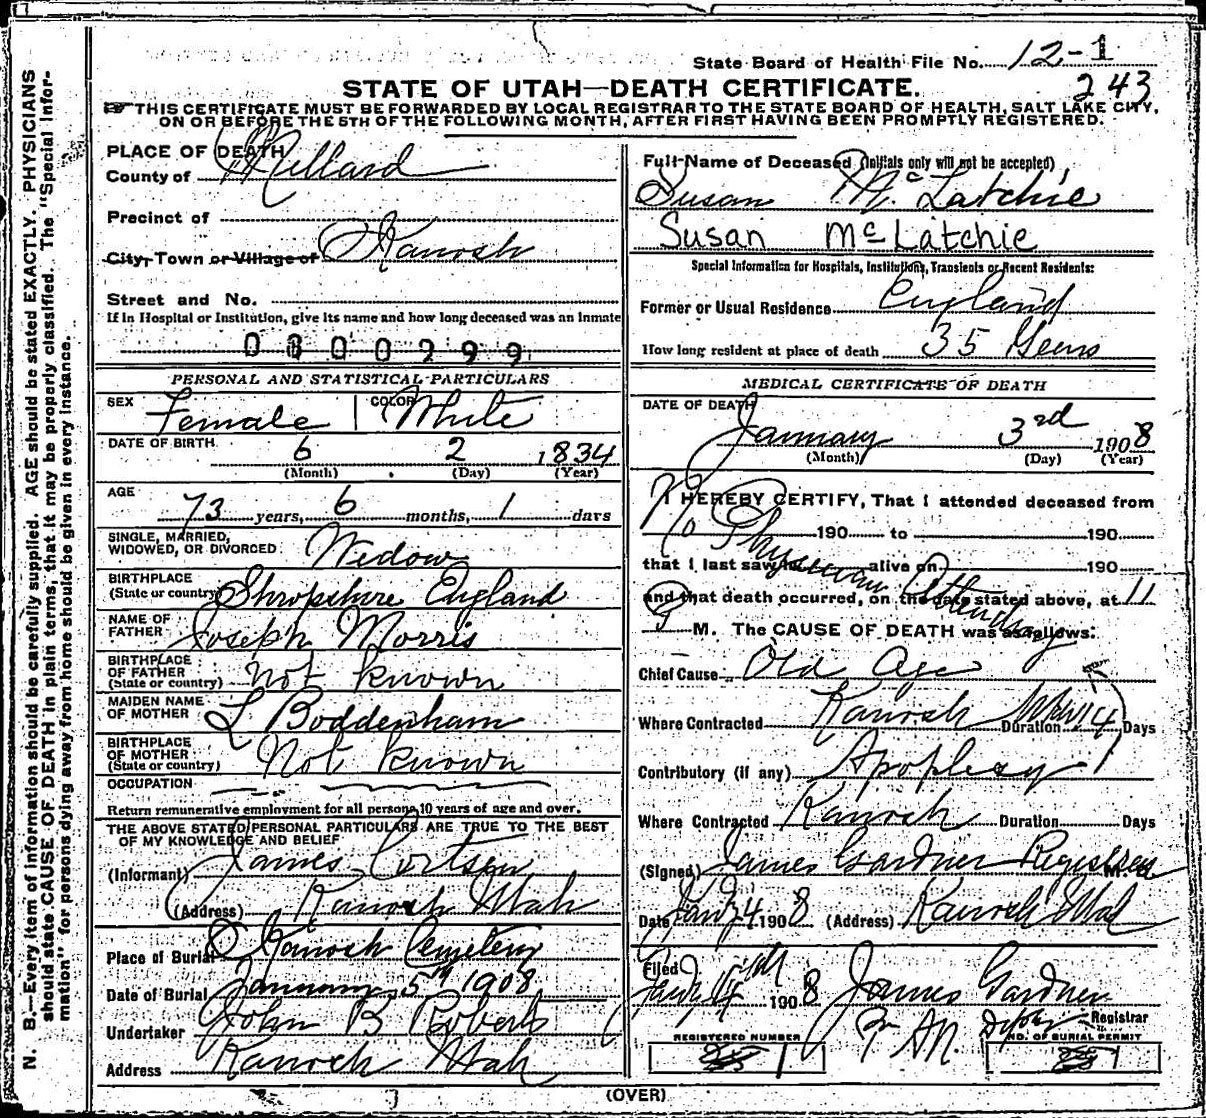 State Board of Health File No. 12-1
243
STATE OF UTAH—DEATH CERTIFICATE.
THIS CERTIFICATE MUST BE FORWARDED BY LOCAL REGISTRAR TO THE STATE BOARD OF HEALTH, SALT LAKE CITY,
ON OR BEFORE THE 5TH OF THE FOLLOWING MONTH, AFTER FIRST HAVING BEEN PROMPTLY REGISTERED.
N. B.—Every item of information should be carefully supplied. AGE should be stated EXACTLY. PHYSICIANS
should state CAUSE OF DEATH in plain terms, that it may be properly classified. The "Special Infor-
mation" for persons dying away from home should be given in every instance.
PLACE OF DEATH
County of Millard
Precinct of
City, Town or Village of Kanosh
Street and No.
If in Hospital or Institution, give its name and how long deceased was an inmate
0800299
PERSONAL AND STATISTICAL PARTICULARS
SEX Female COLOR White
DATE OF BIRTH 6 2 1834
(Month) (Day) (Year)
AGE
73 years, 6 months, 1 days
SINGLE, MARRIED,
WIDOWED, OR DIVORCED Widow
BIRTHPLACE
(State or country) Shropshire England
NAME OF
FATHER Joseph Morris
BIRTHPLACE
OF FATHER
(State or country) Not known
MAIDEN NAME
OF MOTHER L Boddenham
BIRTHPLACE
OF MOTHER
(State or country) Not known
OCCUPATION
Return remunerative employment for all persons 10 years of age and over.
THE ABOVE STATED PERSONAL PARTICULARS ARE TRUE TO THE BEST
OF MY KNOWLEDGE AND BELIEF
(Informant) James Cortsen
(Address) Kanosh Utah
Place of Burial Kanosh Cemetery
Date of Burial January 5th 1908
Undertaker John B Roberts
Address Kanosh Utah
Full Name of Deceased (Initials only will not be accepted)
Susan Mc Latchie
Susan Mc Latchie
Special Information for Hospitals, Institutions, Transients or Recent Residents:
Former or Usual Residence England
How long resident at place of death 35 Years
MEDICAL CERTIFICATE OF DEATH
DATE OF DEATH
January 3rd 1908
(Month) (Day) (Year)
I HEREBY CERTIFY, That I attended deceased from
No Physician Attending
190 to 190
that I last saw h alive on 190
and that death occurred, on the date stated above, at 11
P M. The CAUSE OF DEATH was as follows:
Chief Cause Old Age
Where Contracted Kanosh Duration 4 Days
Contributory (if any) Apoplexy
Where Contracted Kanosh Duration Days
(Signed) James Gardner Registrar M. D.
Date Jany 4 1908 (Address) Kanosh Utah
Filed Jany 4th 1908 James Gardner
Deputy Registrar
REGISTERED NUMBER 1
NO. OF BURIAL PERMIT 1
(OVER)